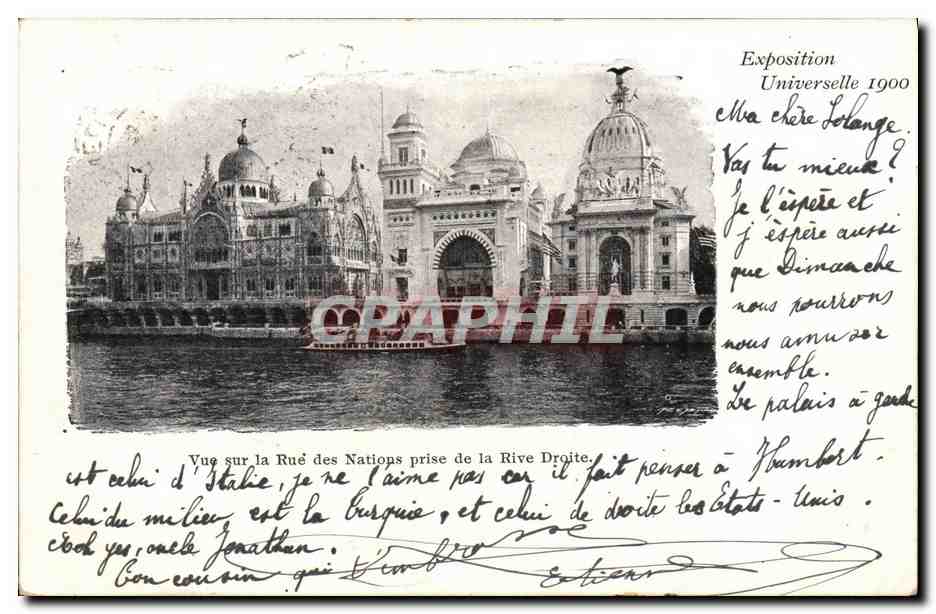 Exposition
Universelle 1900
Ma chère Solange.
Vas tu mieux ?
Je l'éspère et
j'éspère aussi
que Dimanche
nous pourrons
nous amuser
ensemble.
Le palais à gauche
CPARPHIL
Vue sur la Rue des Nations prise de la Rive Droite.
est celui d'Italie, je ne l'aime pas car il fait penser à Humbert.
Celui du milieu est la Turquie, et celui de droite les Etats-Unis.
Ach yes, oncle Jonathan.
Ton cousin qui t'embrasse
Etienne